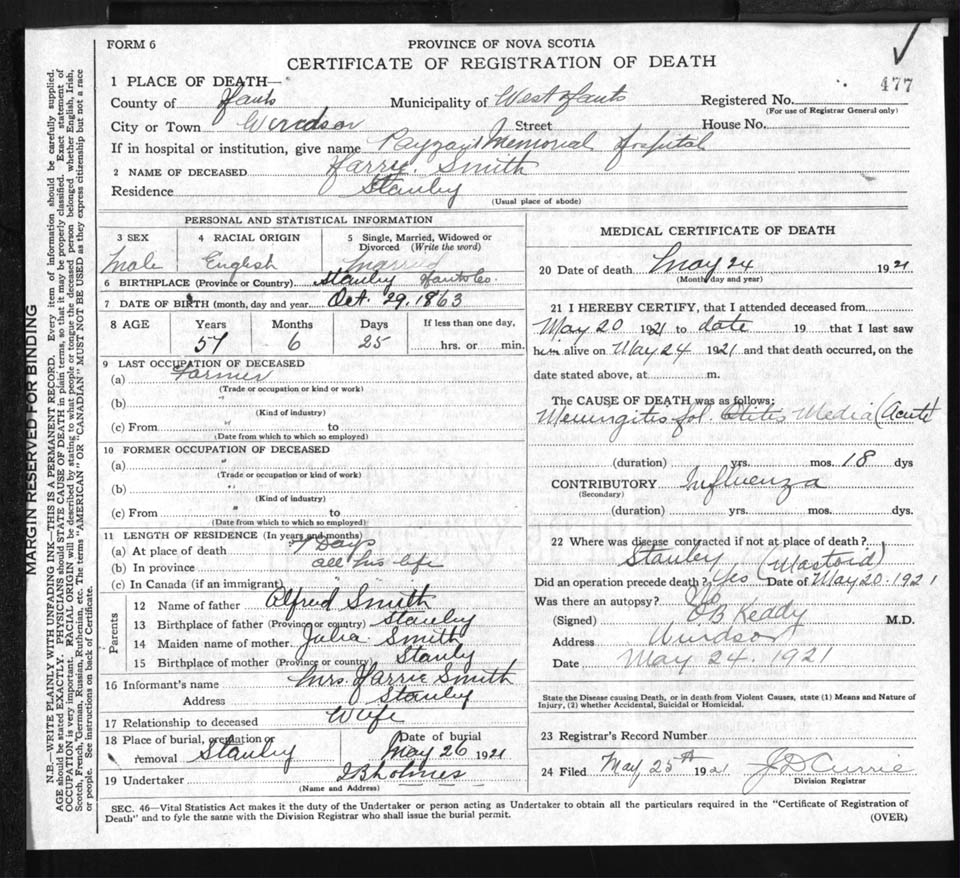 FORM 6
PROVINCE OF NOVA SCOTIA
CERTIFICATE OF REGISTRATION OF DEATH
477
1 PLACE OF DEATH—
County of Hants Municipality of West Hants Registered No.
(For use of Registrar General only)
City or Town Windsor Street House No.
If in hospital or institution, give name Payzant Memorial Hospital
2 NAME OF DECEASED Harrie Smith
Residence Stanley
(Usual place of abode)
PERSONAL AND STATISTICAL INFORMATION
3 SEX 4 RACIAL ORIGIN 5 Single, Married, Widowed or Divorced (Write the word)
Male English Married
6 BIRTHPLACE (Province or Country) Stanley Hants Co.
7 DATE OF BIRTH (month, day and year) Oct. 29. 1863
8 AGE Years Months Days If less than one day,
57 6 25 hrs. or min.
9 LAST OCCUPATION OF DECEASED
(a) Farmer
(Trade or occupation or kind or work)
(b)
(Kind of industry)
(c) From to
(Date from which to which so employed)
10 FORMER OCCUPATION OF DECEASED
(a)
(Trade or occupation or kind of work)
(b)
(Kind of industry)
(c) From to
(Date from which to which so employed)
11 LENGTH OF RESIDENCE (In years and months)
(a) At place of death Days
(b) In province all his life
(c) In Canada (if an immigrant)
Parents
12 Name of father Alfred Smith
13 Birthplace of father (Province or country) Stanley
14 Maiden name of mother Julia Smith
15 Birthplace of mother (Province or country) Stanly
16 Informant's name Mrs. Harrie Smith
Address Stanley
17 Relationship to deceased Wife
18 Place of burial, cremation or removal Stanley Date of burial May 26 1921
19 Undertaker Holmes
(Name and Address)
MEDICAL CERTIFICATE OF DEATH
20 Date of death May 24 1921
(Month, day and year)
21 I HEREBY CERTIFY, that I attended deceased from
May 20 1921 to date 19 that I last saw
him alive on May 24 1921 and that death occurred, on the
date stated above, at m.
The CAUSE OF DEATH was as follows:
Meningitis fol. Otitis Media (Acute)
(duration) yrs. mos. 18 dys
CONTRIBUTORY Influenza
(Secondary)
(duration) yrs. mos. dys.
22 Where was disease contracted if not at place of death?
Stanley (Mastoid)
Did an operation precede death? Yes Date of May 20. 1921
Was there an autopsy? No
(Signed) Keddy M.D.
Address Windsor
Date May 24. 1921
State the Disease causing Death, or in death from Violent Causes, state (1) Means and Nature of
Injury, (2) whether Accidental, Suicidal or Homicidal.
23 Registrar's Record Number
24 Filed May 25th 1921 Currie
Division Registrar
SEC. 46—Vital Statistics Act makes it the duty of the Undertaker or person acting as Undertaker to obtain all the particulars required in the "Certificate of Registration of
Death" and to fyle the same with the Division Registrar who shall issue the burial permit.
(OVER)
MARGIN RESERVED FOR BINDING
N.B.—WRITE PLAINLY WITH UNFADING INK—THIS IS A PERMANENT RECORD. Every item of information should be carefully supplied.
AGE should be stated EXACTLY. PHYSICIANS should STATE CAUSE OF DEATH in plain terms, so that it may be properly classified. Exact statement of
OCCUPATION is very important. RACIAL ORIGIN will be described by stating to what people or tongue the deceased person belonged whether English, Irish,
Scotch, French, German, Russian, Ruthenian, etc. The terms "AMERICAN" OR "CANADIAN" MUST NOT BE USED as they express citizenship but not a race
or people. See instructions on back of Certificate.